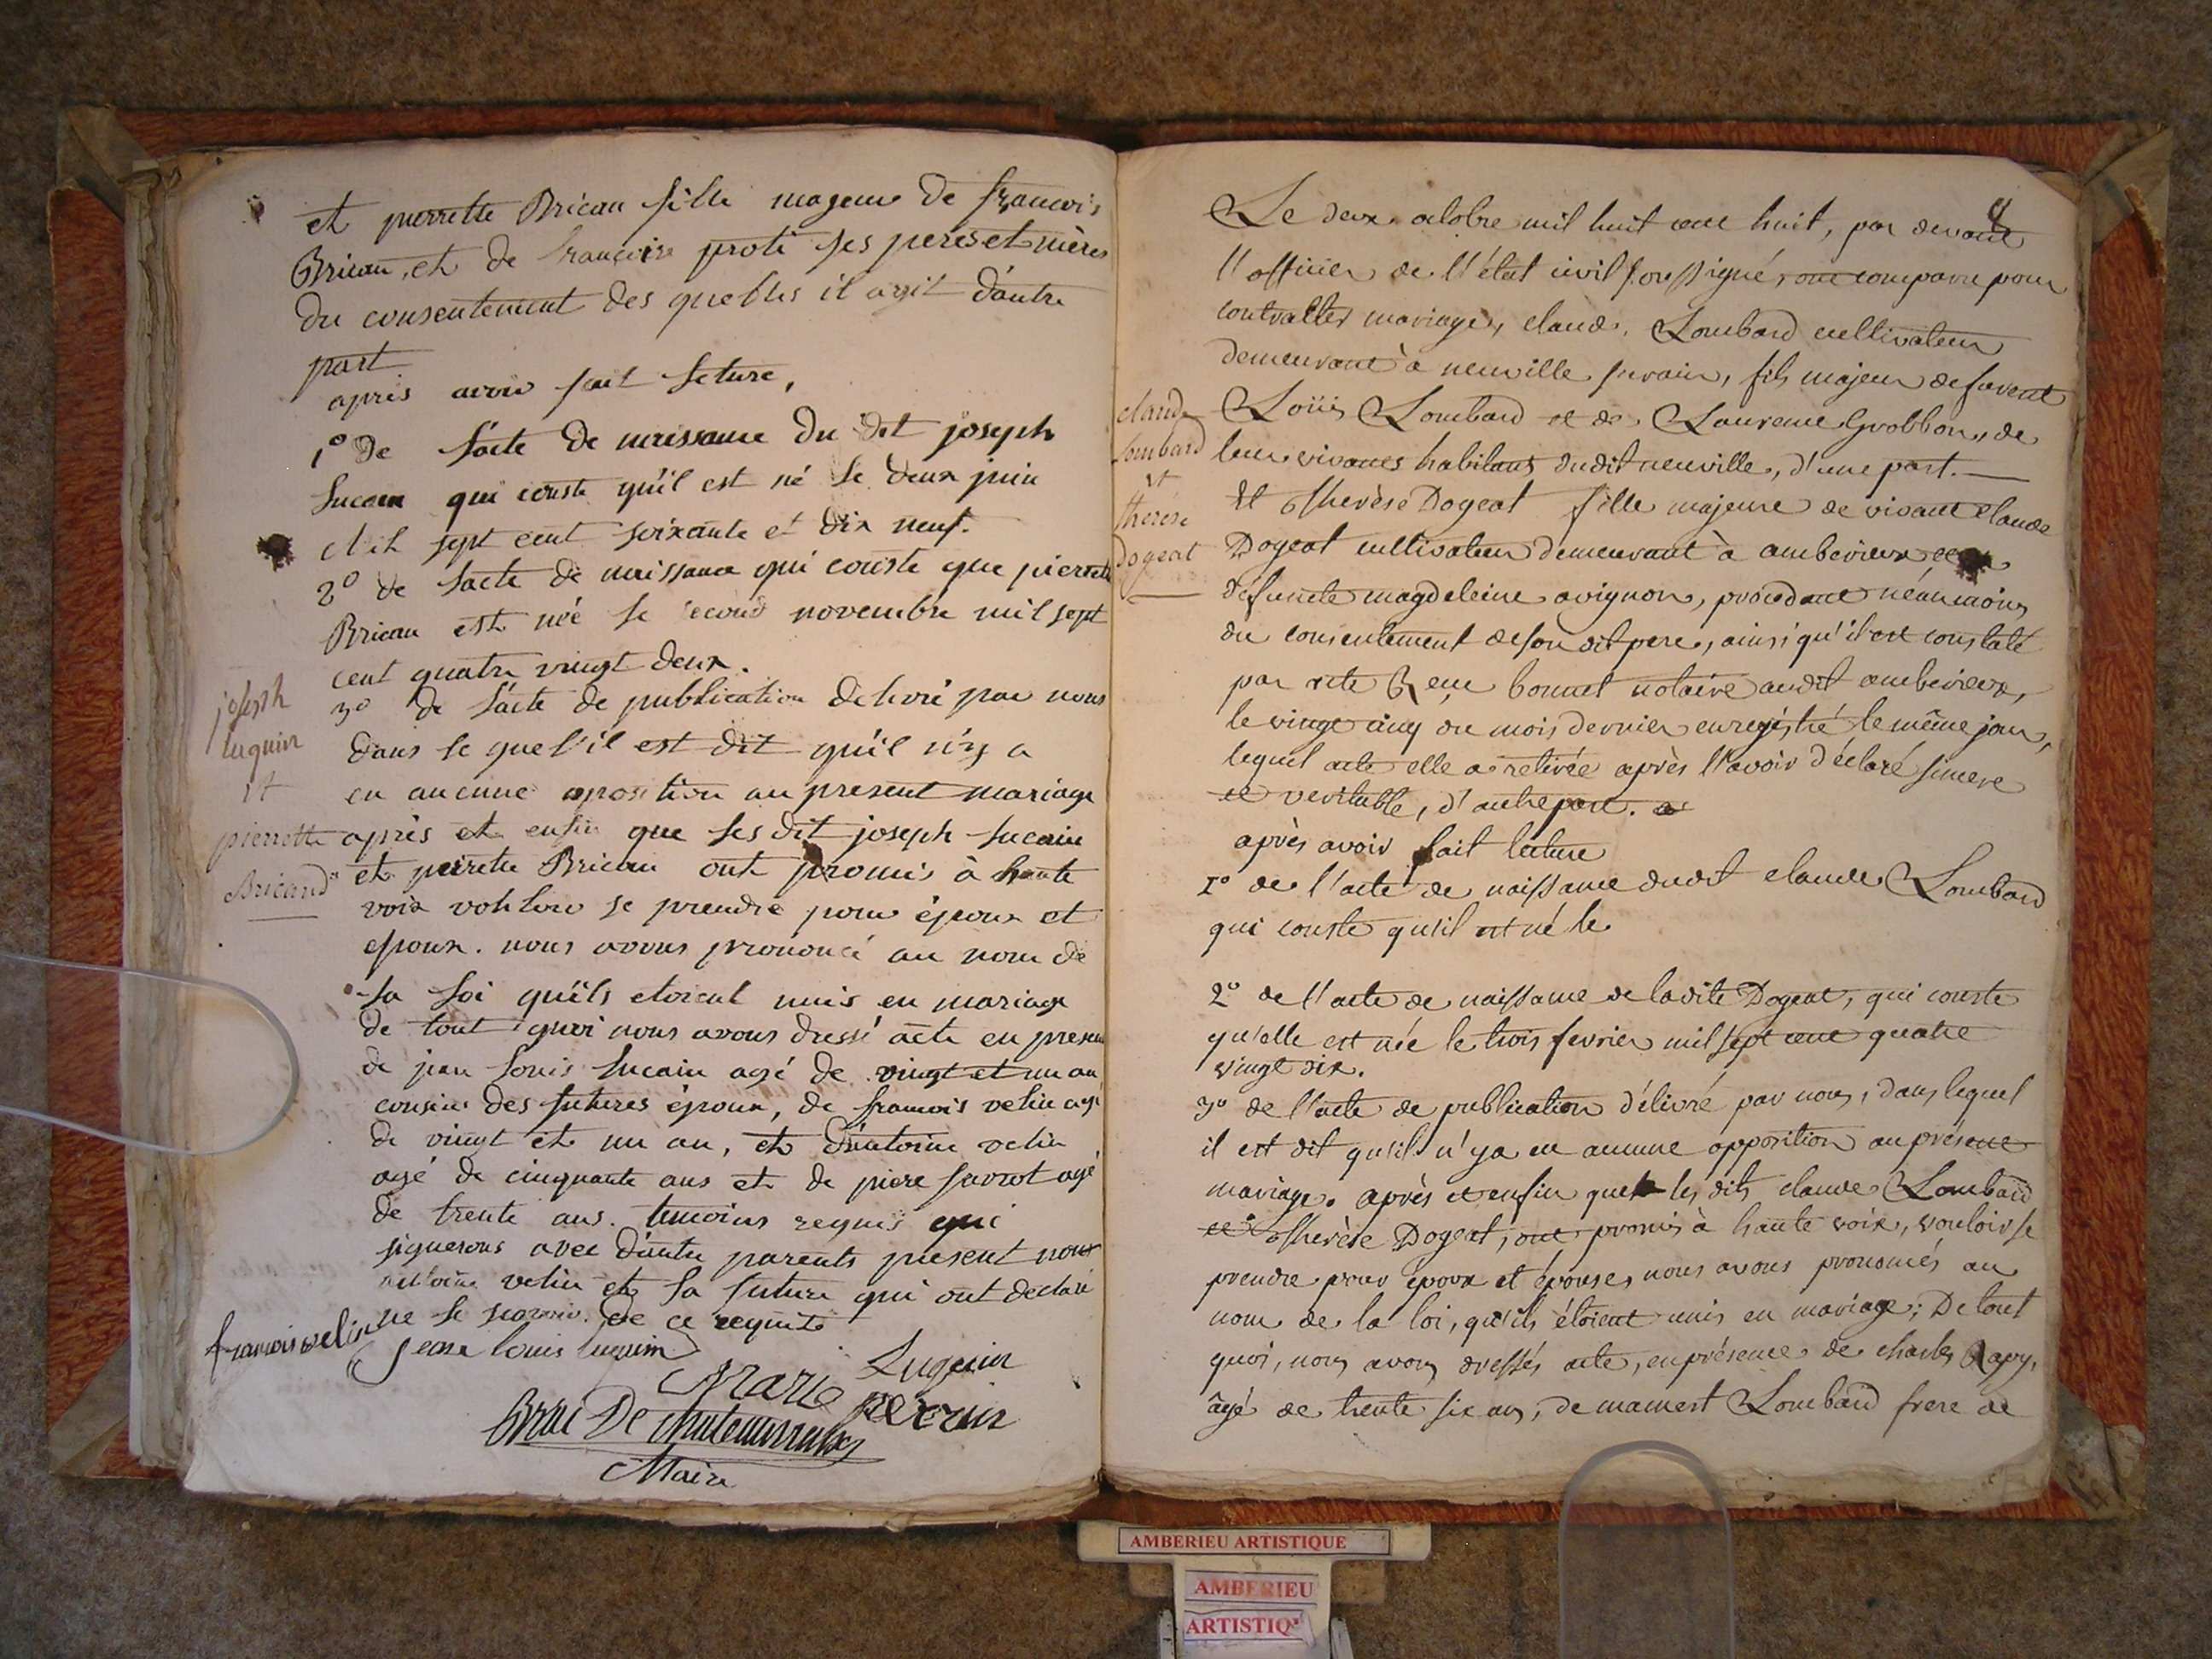 et pierrette Bricau fille mageur de francois
Bricau, et de francoise proti ses peres et mères
du consentement des quelles il agit d'autre
part
après avoir fait lecture,
1° de l'acte de naissance du dit joseph
lucain qui conste qu'il est né le deux juin
Mil sept cent soixante et dix neuf.
2° de l'acte de naissance qui conste que pierrette
Bricau est née le second novembre mil sept
cent quatre vingt deux.
3° de l'acte de publication delivré par nous
dans le quel il est dit qu'il n'y a
eu aucune oposition au present mariage
après et enfin que les dit joseph lucain
et peirette Bricau ont promis à haute
voix vohloir se prendre pour époux et
epoux. nous avons prononcé au nom de
la loi qu'ils etoient unis en mariage
de tout quoi nous avons dressé acte en presence
de jean louis lucain agé de vingt et un an
cousin des futures époux, de francois velin agé
de vingt et un an, et d'antoine velin
agé de cinquante ans et de piere agé
de trente ans. temoins requis qui
signerons avec d'autre parents present non
antoine velin et la future qui ont declaré
ne le scavoir. de ce requits
joseph
luguin
et
pierrette
Bricand
francois velin
Jean louis luguin
Luguin
Marie perrin
Brac De chateauvieux
Maire
Le deux octobre mil huit cent huit, par devant
l'officier de l'état civil soussigné, ont comparu pour
contracter mariage, claude Lombard cultivateur
demeurant à neuville surain, fils majeur de
Loüis Lombard et de Laurence Grobbon, de
leur vivants habitans dudit neuville, d'une part.
Et Therèse Dogeat fille majeure de vivant claude
Dogeat cultivateur demeurant à amberieux et de
défuncte magdeleine avignon, procedant néanmoins
du consentement de son dit pere, ainsi qu'il est constaté
par acte Reçu bonnet notaire audit amberieux,
le vingt cinq du mois dernier enregistré le même jour,
lequel acte elle a retirée après l'avoir déclaré sincere
et veritable, d'autre part.
après avoir fait lecture
1° de l'acte de naissance dudit claude Lombard
qui conste qu'il est né le
2° de l'acte de naissance de ladite Dogeat, qui conste
qu'elle est née le trois fevrier mil sept cent quatre
vingt dix.
3° de l'acte de publication délivré par nous, dans lequel
il est dit qu'il n'ya eu aucune opposition au présent
mariage. après et enfin que les dits claude Lombard
et Therèse Dogeat, ont promis à haute voix, vouloir se
prendre pour époux et épouse, nous avons prononcés au
nom de la loi, qu'ils étoient unis en mariage; De tout
quoi, nous avons dressés acte, en présence de charles Rapy,
âgé de trente six ans, de mamert Lombard frere de
claude
Lombard
et
therese
Dogeat
AMBERIEU ARTISTIQUE
AMBERIEU
ARTISTIQ